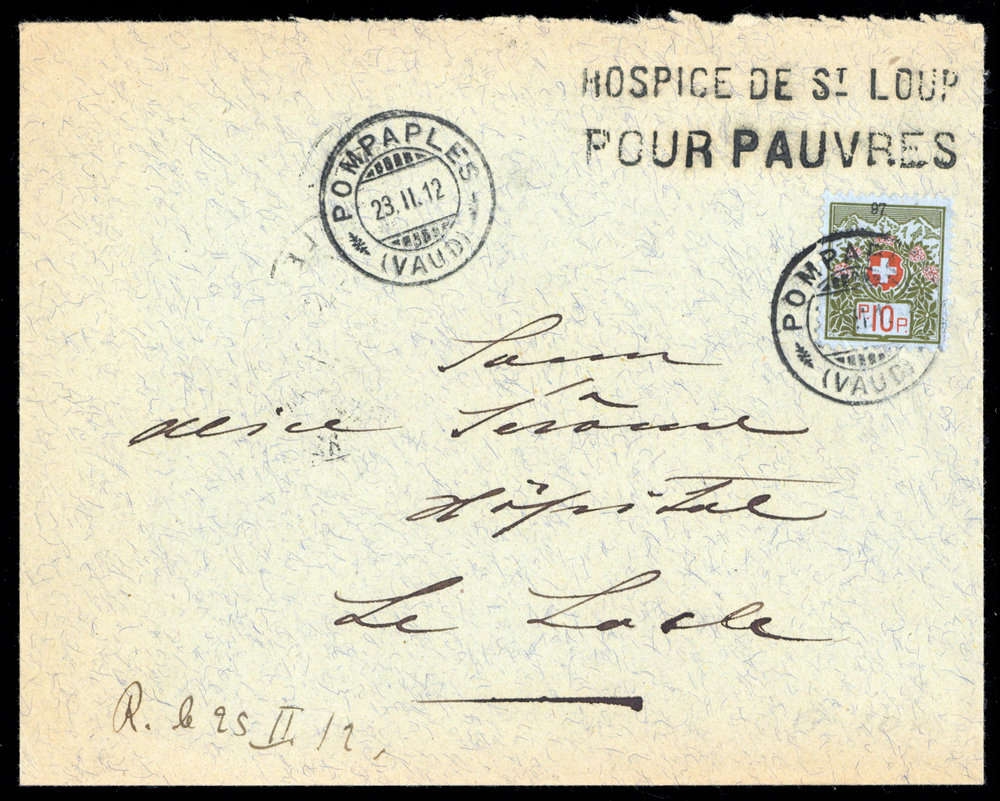 HOSPICE DE ST LOUP
POUR PAUVRES
POMPAPLES
23.II.12
(VAUD)
97
POMPAP
10 P.
(VAUD)
Sœur
Alice Jérôme
Hôpital
Le Locle
R. le 25 II 12.